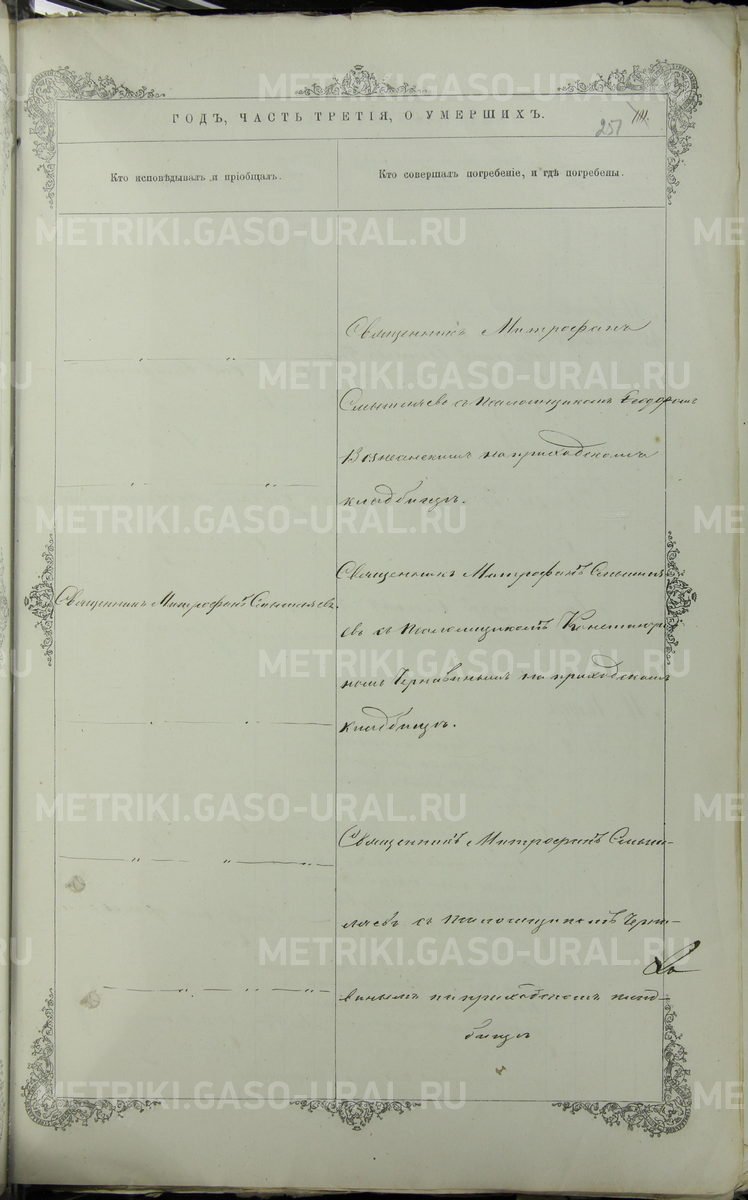 ГОДЪ, ЧАСТЬ ТРЕТІЯ, О УМЕРШИХЪ.
251
Кто исповѣдывалъ и пріобщалъ.
Кто совершалъ погребеніе, и гдѣ погребены.
Священникъ Митрофанъ
с Псаломщикомъ Ѳеодоромъ
Вознесенскимъ на приходскомъ
кладбищѣ.
Священникъ Митрофанъ
Священникъ Митрофанъ
евъ съ Псаломщикомъ Константи
номъ Чернавинымъ на приходскомъ
кладбищѣ.
Священникъ Митрофанъ
съ Псаломщикомъ Черна-
винымъ на приходскомъ клад-
бищѣ
METRIKI.GASO-URAL.RU